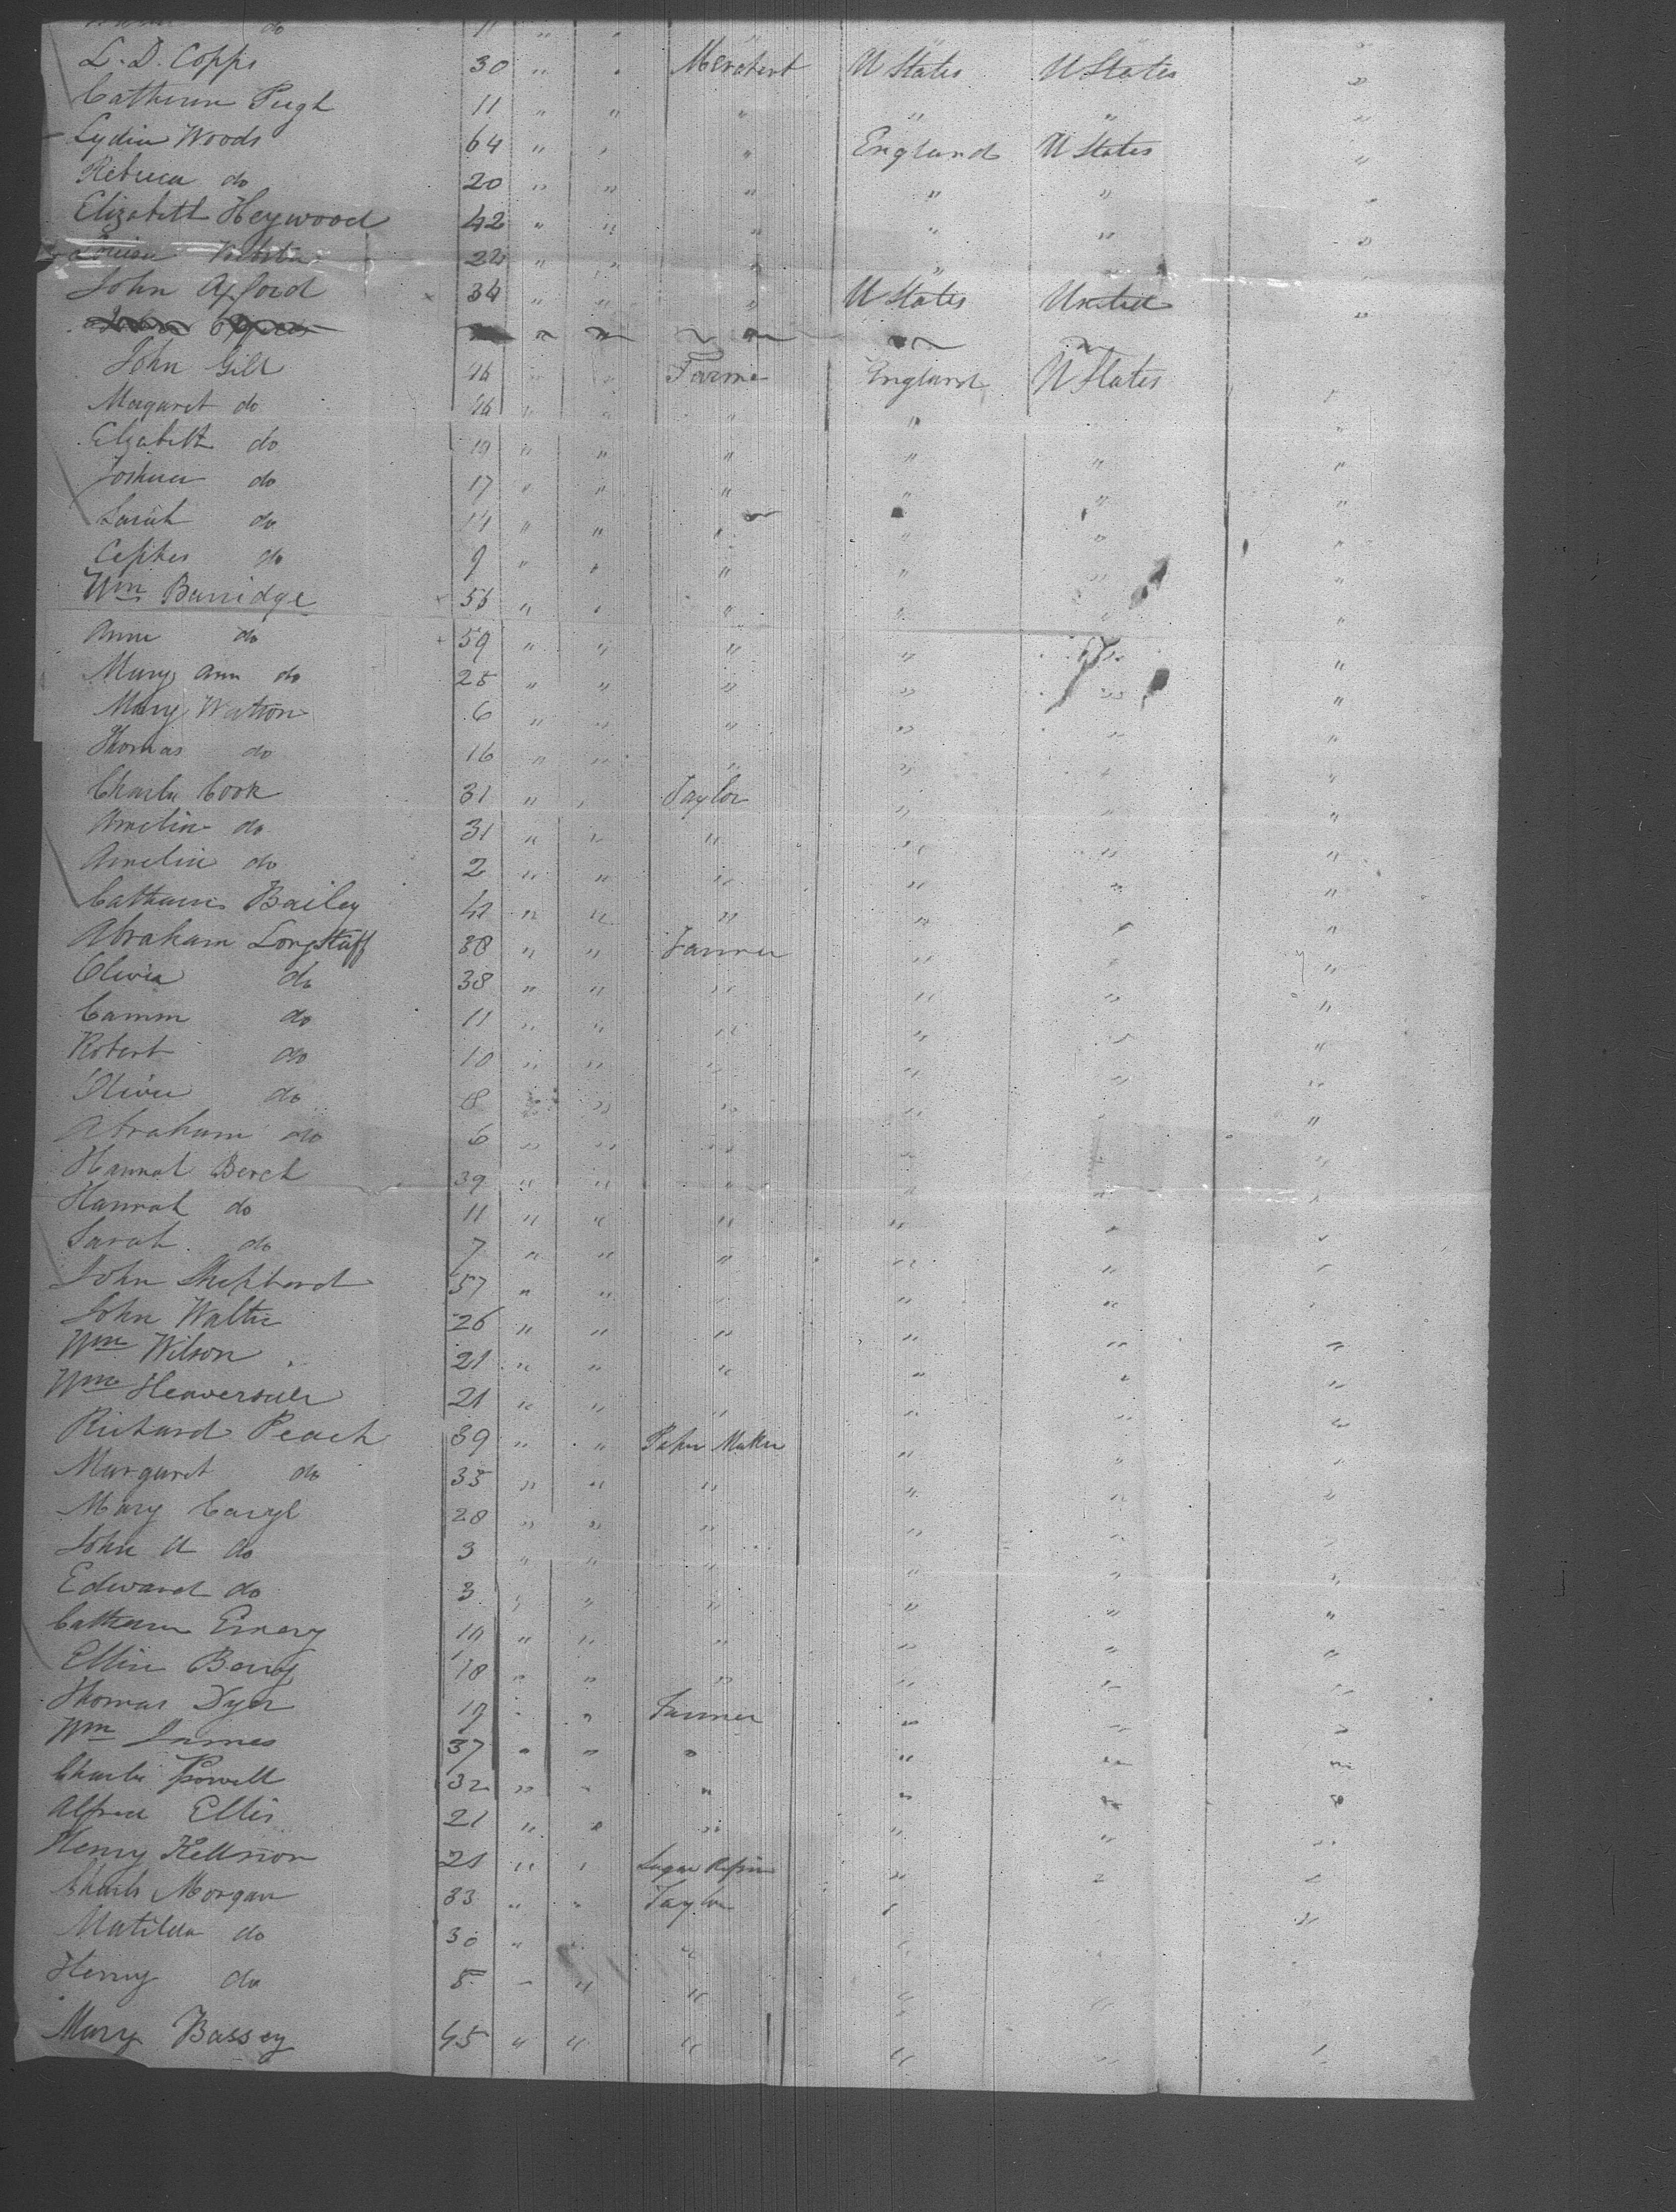 do 11 " "
L. D. Copps 30 " " Merchant U States U States "
Catherine Pugh 11 " " " " " "
Lydia Woods 64 " " " England U States "
Rebecca do 20 " " " " " "
Elizabeth Heywood 42 " " " " " "
Louisa 22 " " " "
John Axford 34 " " " U States United "
John Gill Farmer England U States
Margaret do " " " " "
Elizabeth do 19 " " " " " "
Joshua do 17 " " " " " "
Sarah do 14 " " " " " "
Cephas do 9 " " " " " "
Wm Burridge " " " " " "
Ann do 59 " " " " " "
Mary Ann do 25 " " " " " "
Mary Watson 6 " " " " " "
Thomas do 16 " " " " " "
Charles Cook 31 " " Taylor " " "
Amelia do 31 " " " " " "
Amelia do 2 " " " " " "
Catharine Bailey 41 " " " " " "
Abraham Longstaff 38 " " Farmer " " "
Olivia do 38 " " " " " "
Camm do 11 " " " " " "
Robert do 10 " " " " " "
Olivia do 8 " " " " " "
Abraham do 6 " " " " " "
Hannah Berch 39 " " " " " "
Hannah do 11 " " " " " "
Sarah do 7 " " " " " "
John Shephard 57 " " " " "
John Walter 26 " " " " " "
Wm Wilson 21 " " " " " "
Wm 21 " " " " " "
Richard Peach 39 " " Maker " " "
Margaret do 35 " " " " " "
Mary Caryl 28 " " " " " "
John A do 3 " " " " " "
Edward do 3 " " " " " "
Catherine Emery 19 " " " " " "
Ellen Berry 18 " " " " " "
Thomas Dyer 19 " " Farmer " " "
Wm James 37 " " " " " "
Charles Powell 32 " " " " " "
Alfred Ellis 21 " " " " " "
Henry 21 " " Sugar Refiner " " "
Charles Morgan 33 " " Taylor " "
Matilda do 30 " " " "
Henry do 5 " " " " "
Mary Bassey 45 " " " " " "